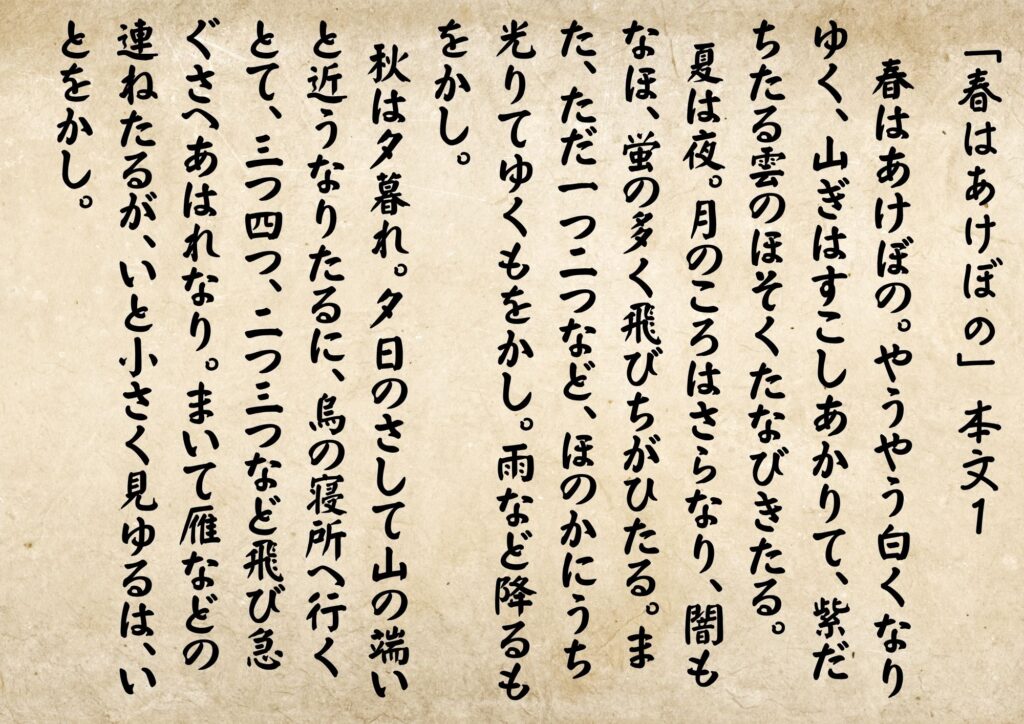 「春はあけぼの」 本文1
春はあけぼの。やうやう白くなり
ゆく、山ぎはすこしあかりて、紫だ
ちたる雲のほそくたなびきたる。
夏は夜。月のころはさらなり、闇も
なほ、蛍の多く飛びちがひたる。ま
た、ただ一つ二つなど、ほのかにうち
光りてゆくもをかし。雨など降るも
をかし。
秋は夕暮れ。夕日のさして山の端い
と近うなりたるに、烏の寝所へ行く
とて、三つ四つ、二つ三つなど飛び急
ぐさへあはれなり。まいて雁などの
連ねたるが、いと小さく見ゆるは、い
とをかし。